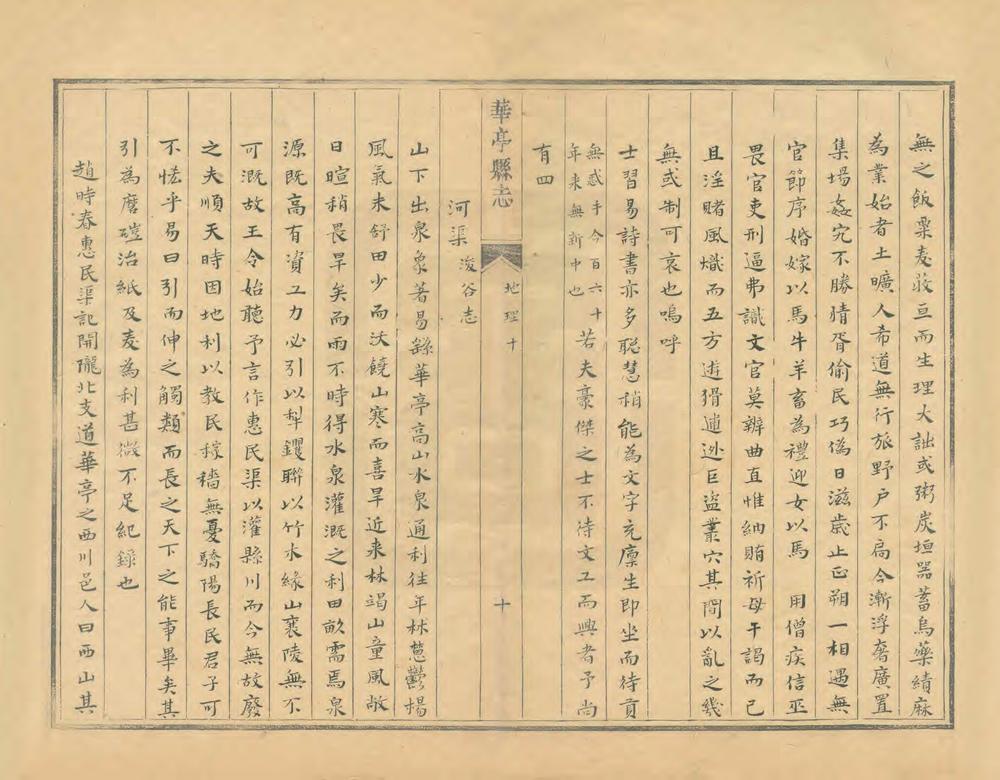 無之飯粟麦菽亘而生理大詘或粥炭垣器蓄烏藥績麻
為業始者土曠人希道無行旅野户不扃今漸浮奢廣置
集場姦宄不勝猜胥偷民巧偽日滋歲止正朔一相過無
官節序婚嫁以馬牛羊畜為禮迎女以馬 用僧疾信巫
畏官吏刑逼弗識文官莫辨曲直惟納賄祈毋干謁而已
且淫賭風熾而五方逰猾逋迯巨盜叢穴其間以亂之幾
無或制可哀也嗚呼
士習易詩書亦多聰慧稍能為文字充廩生即坐而待貢
無惑乎今百六十
年来無新中也
若夫豪傑之士不待文工而興者予尚
有四
華亭縣志
地理 十
十
河渠
浚谷志
山下出泉象著易繇華亭高山水泉通利往年林蔥鬱楊
風氣未舒田少而沃饒山寒而喜旱近来林竭山童風敞
日暄稍畏旱矣而雨不時得水泉灌溉之利田畝需焉泉
源既高有資工力必引以犁钁聯以竹木緣山襄陵無不
可溉故王令始聽予言作惠民渠以灌縣川而今無故廢
之夫順天時因地利以教民稼穡無憂驕陽長民君子可
不恡乎易曰引而伸之觸類而長之天下之能事畢矣其
引為磨磑治紙及麦為利甚微不足紀錄也
趙時春惠民渠記開隴北支道華亭之西川邑人曰西山其